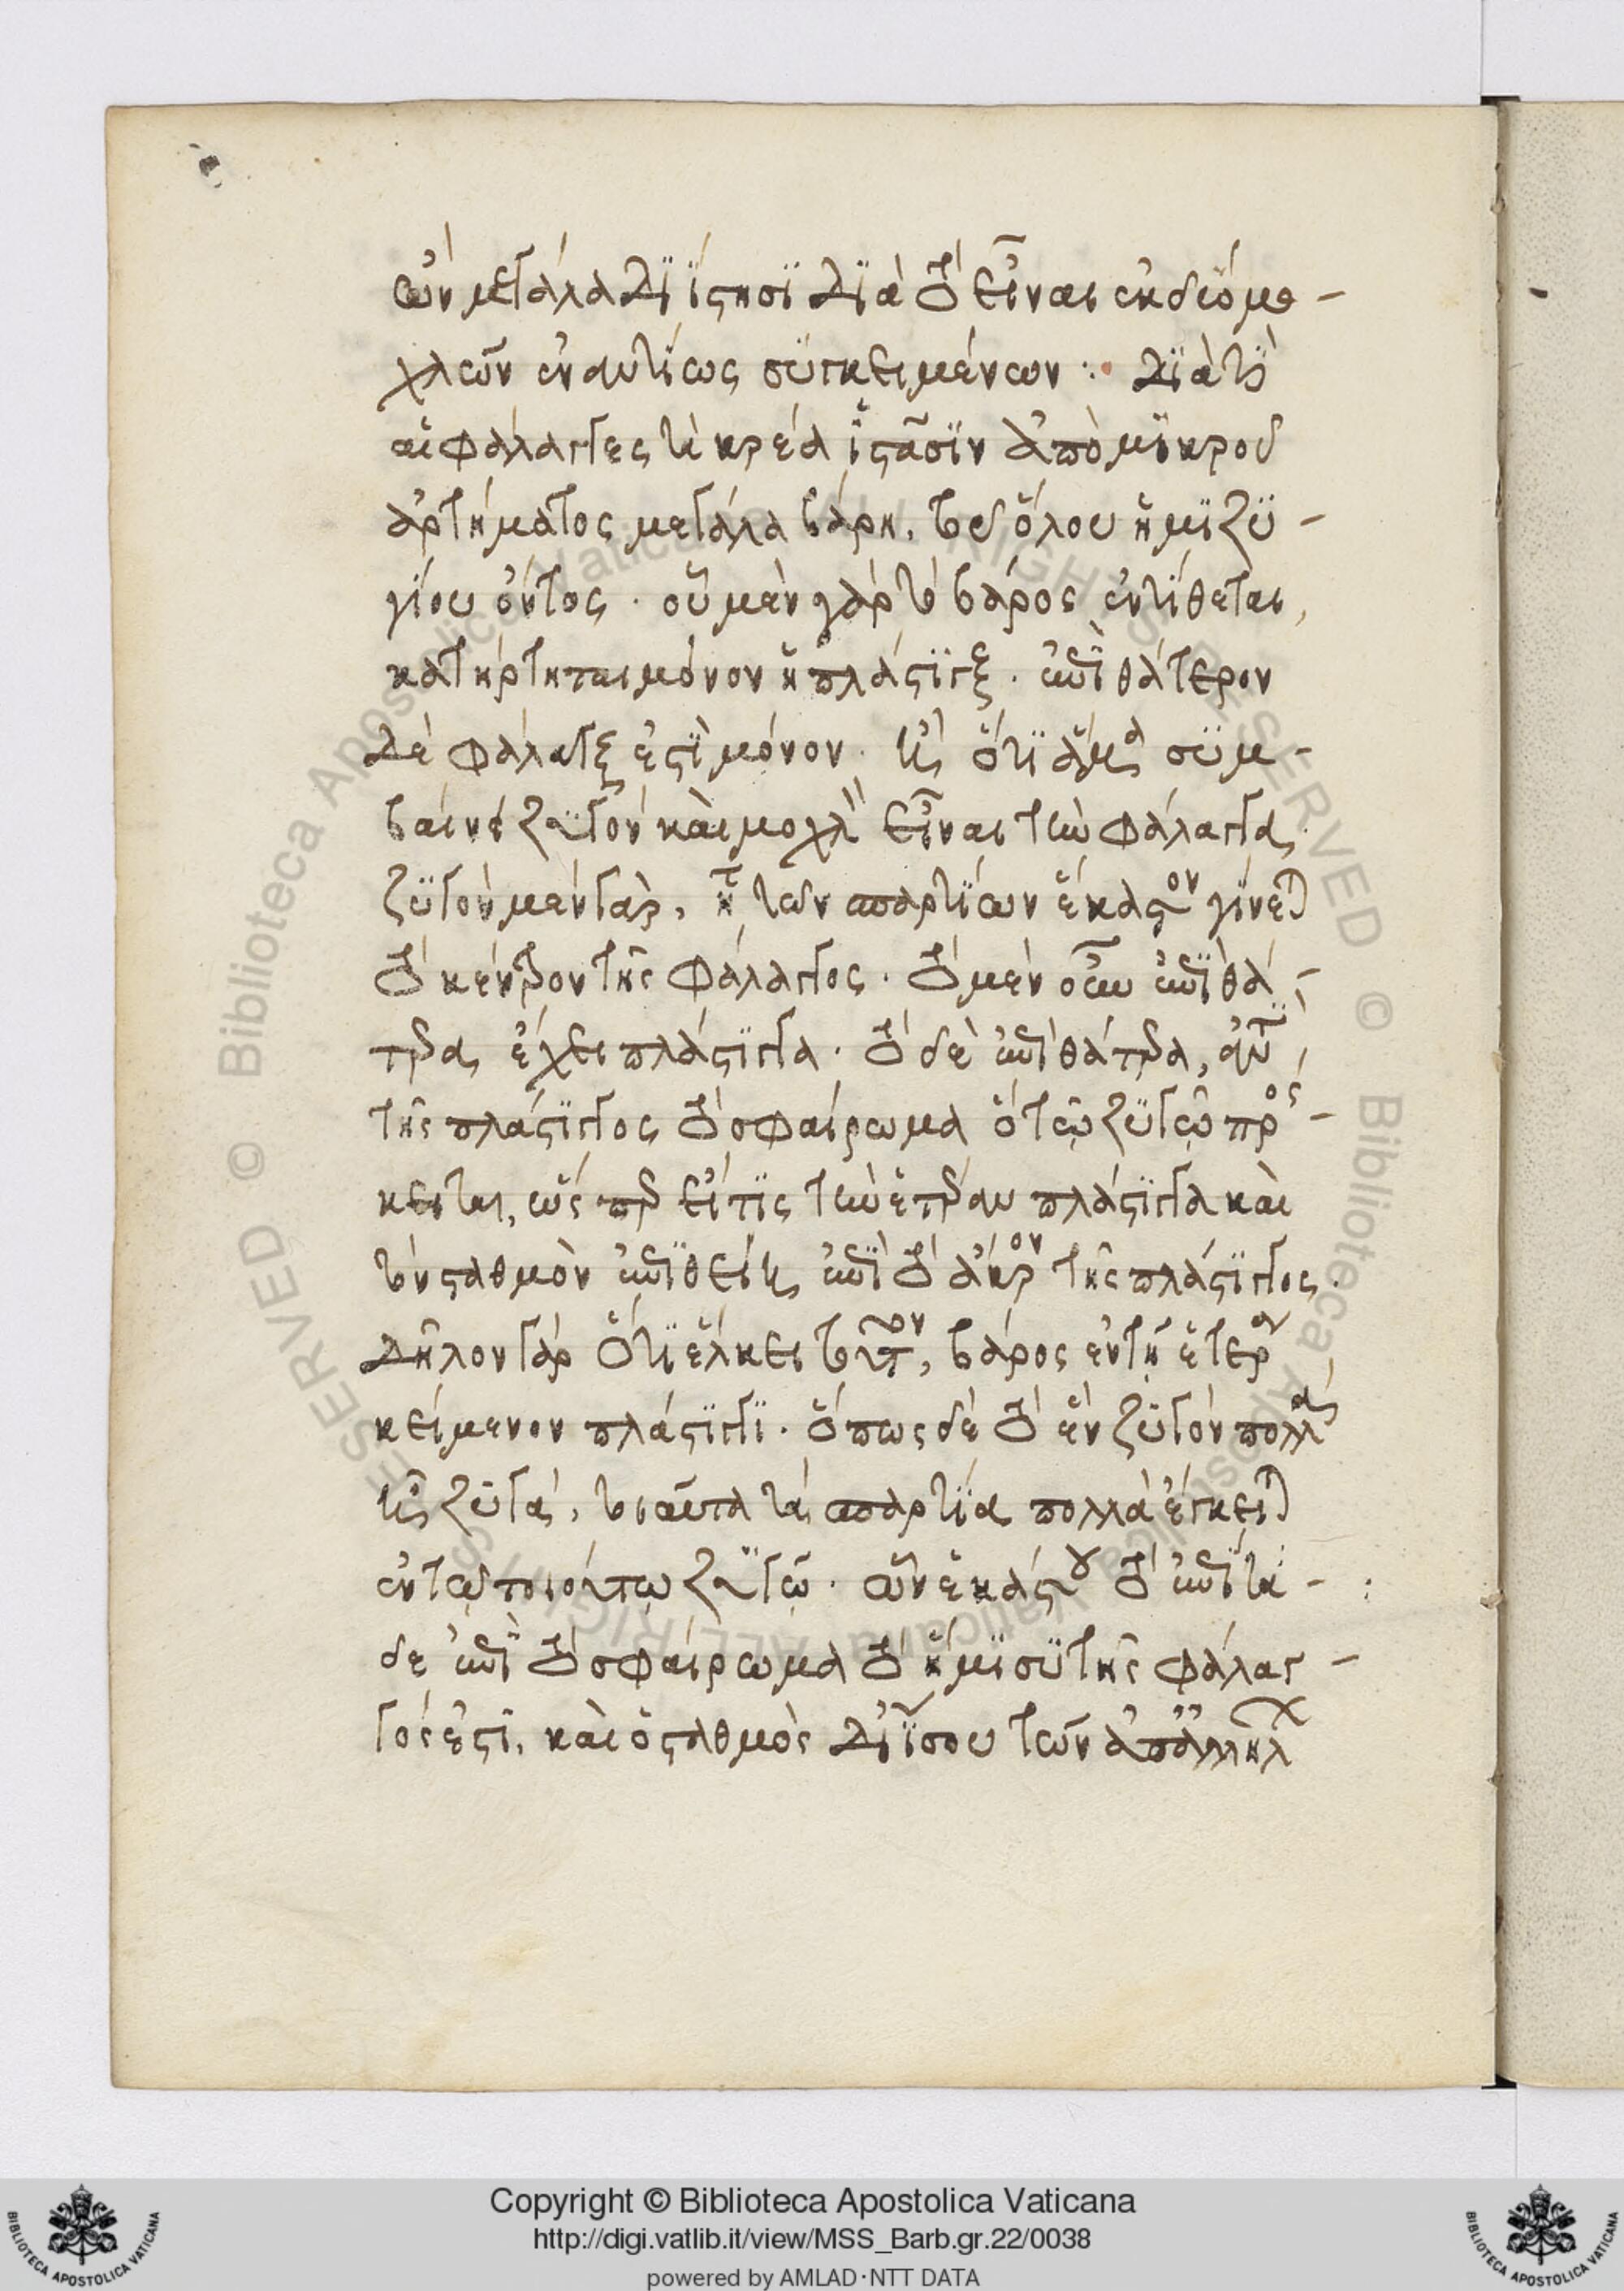 ὠν μεγάλα διΐστησι διὰ τὸ εἶναι ἐκ δύο μο-
χλῶν ἐναντίως συγκειμένων : διὰ τί
αἱ φάλαγγες τὰ κρέα ἱστᾶσιν ἀπὸ μικροῦ
ἀρτήματος μεγάλα βάρη, τοῦ ὅλου ἡμιζυ-
γίου ὄντος. οὗ μὲν γὰρ τὸ βάρος ἐντίθεται,
κατήρτηται μόνον ἡ πλάστιγξ. ἐπὶ θάτερον
δὲ φάλαγξ ἐστὶ μόνον. ἢ ὅτι ἅμα συμ-
βαίνει ζυγὸν καὶ μοχλὸν εἶναι τὴν φάλαγγα
ζυγὸν μὲν γὰρ, ᾗ τῶν σπαρτίων ἕκαστον γίνεται
τὸ κέντρον τῆς φάλαγγος. τὸ μὲν οὖν ἐπὶ θά-
τερα ἔχει πλάστιγγα. τὸ δὲ ἐπὶ θάτερα, ἀντὶ
τῆς πλάστιγγος τὸ σφαίρωμα ὃ τῷ ζυγῷ πρόσ-
κειται, ὥσπερ εἴ τις τὴν ἑτέραν πλάστιγγα καὶ
τὸν σταθμὸν ἐπιθείη ἐπὶ τὸ ἄκρον τῆς πλάστιγγος.
δῆλον γὰρ ὅτι ἕλκει τοσοῦτον, βάρος ἐν τῇ ἑτέρᾳ
κείμενον πλάστιγγι. ὅπως δὲ τὸ ἓν ζυγὸν πολλὰ
ᾖ ζυγὰ, τοιαῦτα τὰ σπαρτία πολλὰ ἔγκειται
ἐν τῷ τοιούτῳ ζυγῷ. ὧν ἑκάστου τὸ ἐπὶ τά-
δε ἐπὶ τὸ σφαίρωμα τὸ ἥμισυ τῆς φάλαγ-
γός ἐστι, καὶ ὁ σταθμὸς δι' ἴσου τῶν ἀπ' ἀλλήλων
Copyright © Biblioteca Apostolica Vaticana
http://digi.vatlib.it/view/MSS_Barb.gr.22/0038
powered by AMLAD·NTT DATA